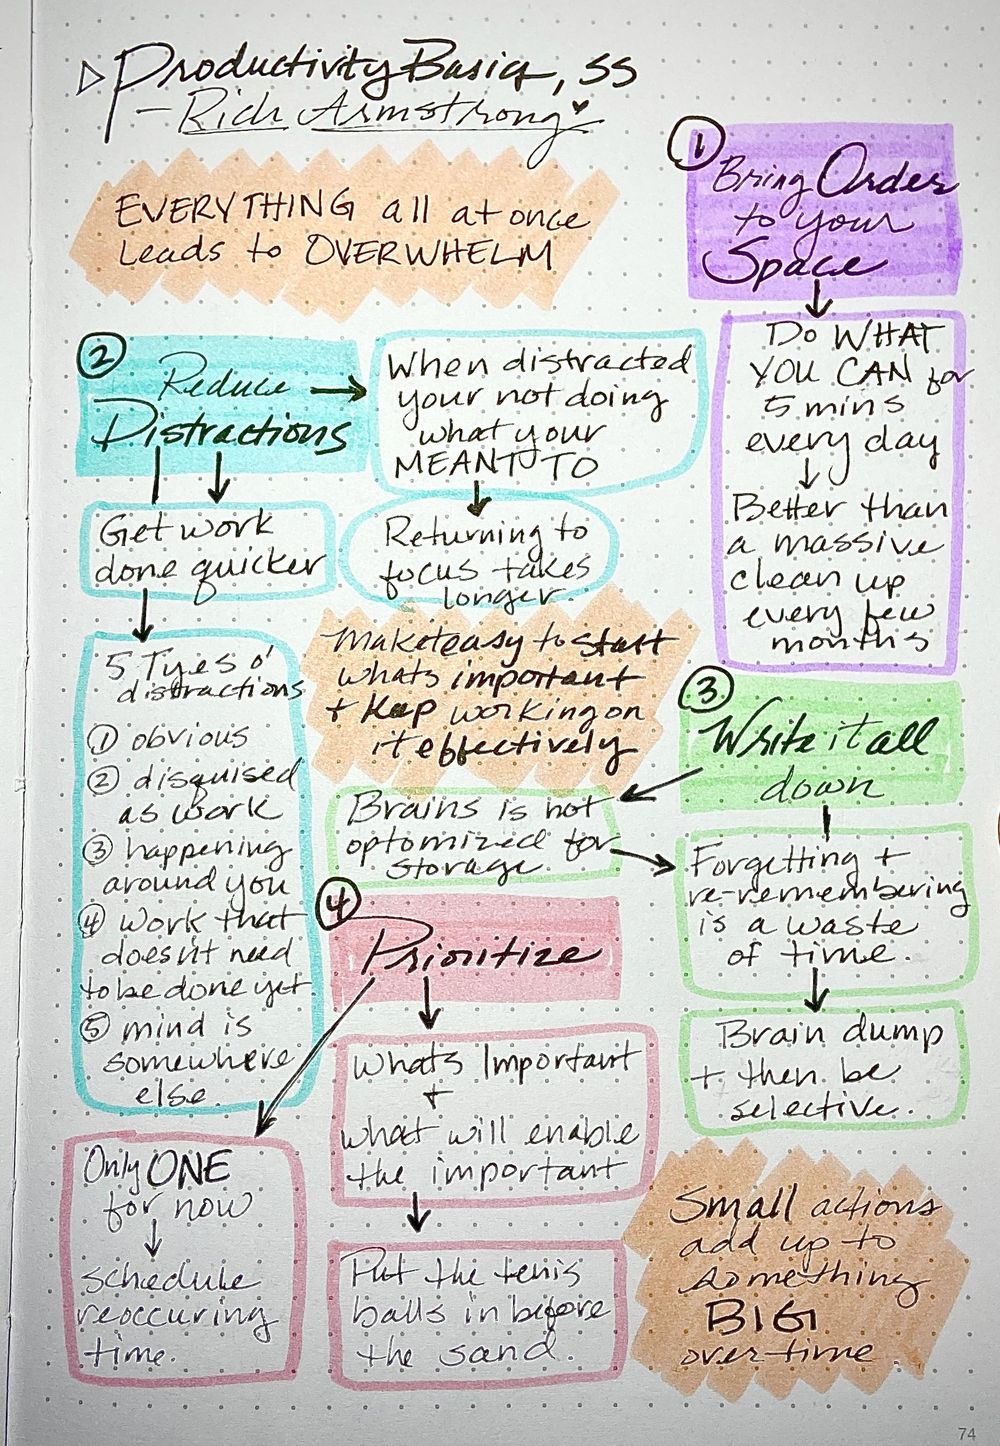 Productivity Basics, SS
- Rich Armstrong
EVERYTHING all at once
Leads to OVERWHELM
1
Bring Order
to your
Space
Do WHAT
YOU CAN for
5 mins
every day
Better than
a massive
clean up
every few
months
2
Reduce
Distractions
When distracted
your not doing
what your
MEANT TO
Returning to
focus takes
longer.
Get work
done quicker
5 Tyes o'
distractions
1 obvious
2 disguised
as work
3 happening
around you
4 work that
doesn't need
to be done yet
5 mind is
somewhere
else.
Make it easy to start
whats important
+ keep working on
it effectively
3
Write it all
down
Brains is not
optomized for
storage.
Forgetting +
re-remembering
is a waste
of time.
Brain dump
+ then be
selective.
4
Prioritize
Whats Important
+
what will enable
the important
Put the tenis
balls in before
the sand.
Only ONE
for now
schedule
reoccuring
time.
Small actions
add up to
something
BIG
over time
74